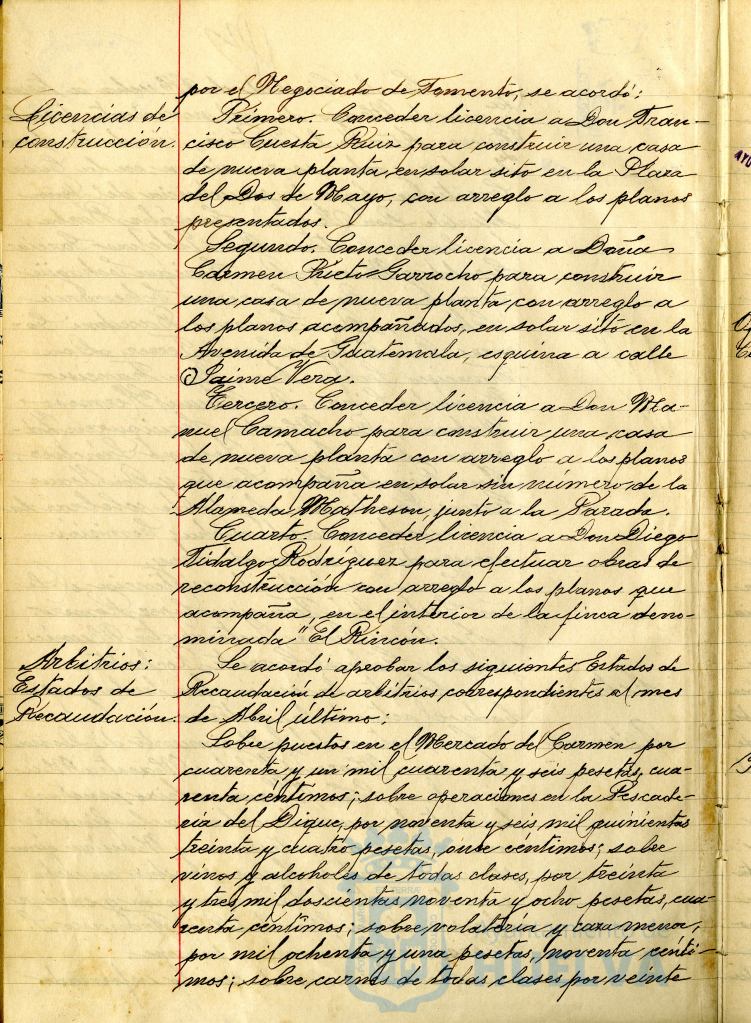 por el Negociado de Fomento, se acordó:
Licencias de
construcción.
Primero. Conceder licencia a Don Fran-
cisco Cuesta Ruiz para construir una casa
de nueva planta, en solar sito en la Plaza
del Dos de Mayo, con arreglo a los planos
presentados.
Segundo. Conceder licencia a Doña
Carmen Prieto Garrocho para construir
una casa de nueva planta con arreglo a
los planos acompañados, en solar sito en la
Avenida de Guatemala, esquina a calle
Jaime Vera.
Tercero. Conceder licencia a Don Ma-
nuel Camacho para construir una casa
de nueva planta con arreglo a los planos
que acompaña en solar sin número de la
Alameda Matheson, junto a la Parada.
Cuarto. Conceder licencia a Don Diego
Hidalgo Rodríguez para efectuar obras de
reconstrucción con arreglo a los planos que
acompaña, en el interior de la finca deno-
minada "El Rincón.
Arbitrios:
Estados de
Recaudación.
Se acordó aprobar los siguientes Estados de
Recaudación de arbitrios correspondientes al mes
de Abril último:
Sobre puestos en el Mercado del Carmen por
cuarenta y un mil cuarenta y seis pesetas, cua-
renta céntimos; sobre operaciones en la Pescade-
ría del Dique, por noventa y seis mil quinientas
treinta y cuatro pesetas, once céntimos; sobre
vinos y alcoholes de todas clases, por treinta
y tres mil doscientas noventa y ocho pesetas, cua-
renta céntimos; sobre volatería y caza menor,
por mil ochenta y una pesetas, noventa cénti-
mos; sobre carnes de todas clases por veinte